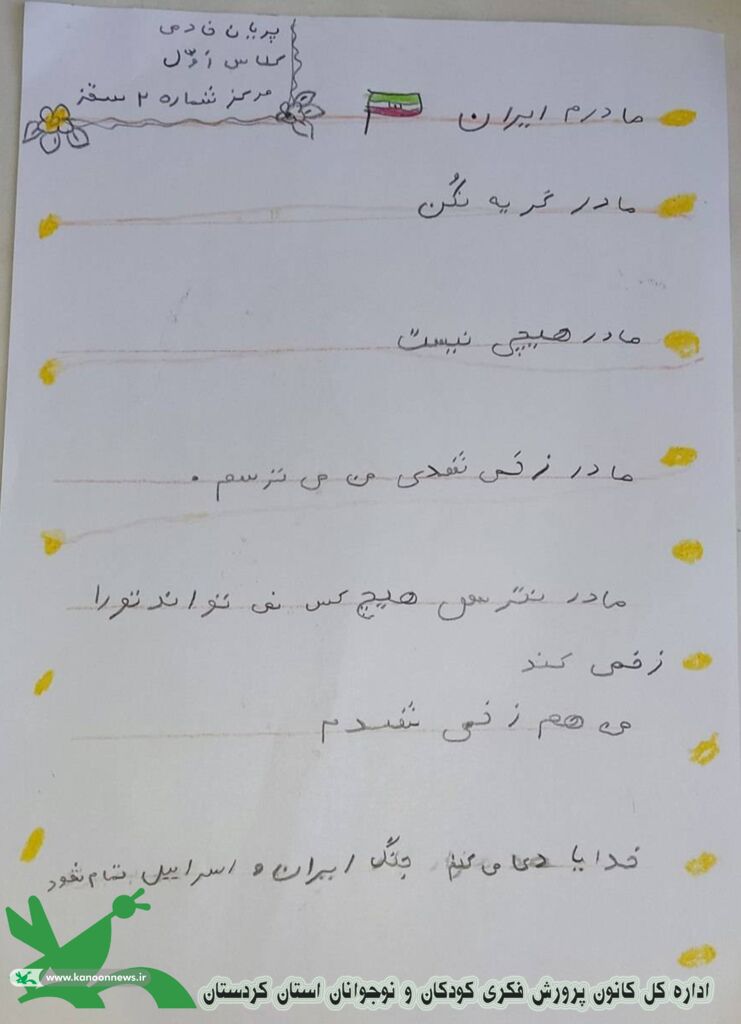 پریان قادمی
کلاس اوّل
مرکز شماره ۲ سقز
مادرم ایران
مادر گریه نکُن
مادر هیچی نیست
مادر زخمی شدی من می ترسم .
مادر نترس هیچ کس نمی تواند تورا
زخمی کند
می هم زخمی شدم
خدایا دعا می کنم جنگ ایران و اسراییل تمام شود
www.kanoonnews.ir
اداره کل کانون پرورش فکری کودکان و نوجوانان استان کردستان